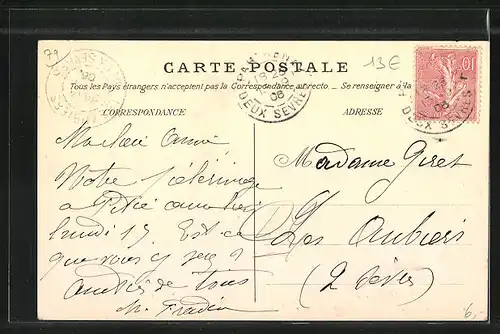 79
13€
CARTE POSTALE
Tous les Pays étrangers n'acceptent pas la Correspondance au recto. Se renseigner à la
CORRESPONDANCE
ADRESSE
PARTHENAY
08
DEUX SEVRES
10
DEUX SEVRES
08
Madame Giret
Les Aubiers
(2 Sèvres)
Ma chère amie
Notre pèlerinage
a Pitié aura lieu
lundi 15 Est ce
que vous y serez ?
Amitiés de tous
M. Fradin
6,-